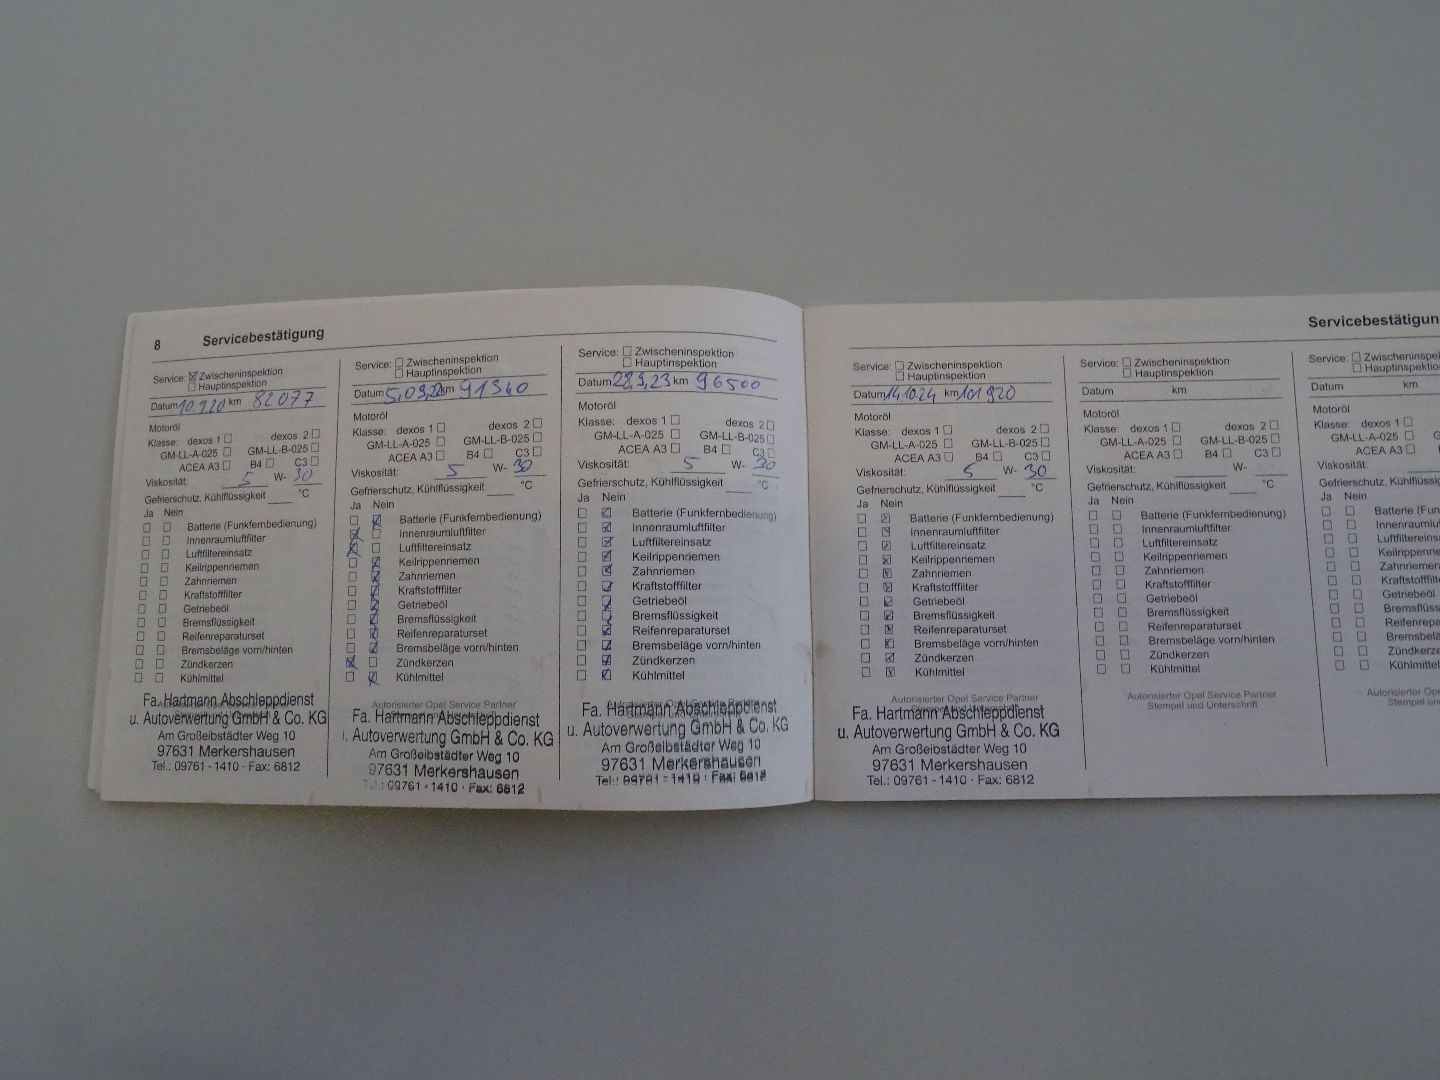 8 Servicebestätigung
Service: Zwischeninspektion
Hauptinspektion
Datum 10.9.20 km 82077
Motoröl
Klasse: dexos 1 dexos 2
GM-LL-A-025 GM-LL-B-025
ACEA A3 B4 C3
Viskosität: 5 W- 30
Gefrierschutz, Kühlflüssigkeit °C
Ja Nein
Batterie (Funkfernbedienung)
Innenraumluftfilter
Luftfiltereinsatz
Keilrippenriemen
Zahnriemen
Kraftstofffilter
Getriebeöl
Bremsflüssigkeit
Reifenreparaturset
Bremsbeläge vorn/hinten
Zündkerzen
Kühlmittel
Fa. Hartmann Abschleppdienst
u. Autoverwertung GmbH & Co. KG
Am Großeibstädter Weg 10
97631 Merkershausen
Tel.: 09761 - 1410 · Fax: 6812
Service: Zwischeninspektion
Hauptinspektion
Datum 5.09.22 km 91340
Motoröl
Klasse: dexos 1 dexos 2
GM-LL-A-025 GM-LL-B-025
ACEA A3 B4 C3
Viskosität: 5 W- 30
Gefrierschutz, Kühlflüssigkeit °C
Ja Nein
Batterie (Funkfernbedienung)
Innenraumluftfilter
Luftfiltereinsatz
Keilrippenriemen
Zahnriemen
Kraftstofffilter
Getriebeöl
Bremsflüssigkeit
Reifenreparaturset
Bremsbeläge vorn/hinten
Zündkerzen
Kühlmittel
Autorisierter Opel Service Partner
Fa. Hartmann Abschleppdienst
u. Autoverwertung GmbH & Co. KG
Am Großeibstädter Weg 10
97631 Merkershausen
Tel.: 09761 - 1410 · Fax: 6812
Service: Zwischeninspektion
Hauptinspektion
Datum 28.9.23 km 96500
Motoröl
Klasse: dexos 1 dexos 2
GM-LL-A-025 GM-LL-B-025
ACEA A3 B4 C3
Viskosität: 5 W- 30
Gefrierschutz, Kühlflüssigkeit °C
Ja Nein
Batterie (Funkfernbedienung)
Innenraumluftfilter
Luftfiltereinsatz
Keilrippenriemen
Zahnriemen
Kraftstofffilter
Getriebeöl
Bremsflüssigkeit
Reifenreparaturset
Bremsbeläge vorn/hinten
Zündkerzen
Kühlmittel
Fa. Hartmann Abschleppdienst
u. Autoverwertung GmbH & Co. KG
Am Großeibstädter Weg 10
97631 Merkershausen
Tel.: 09761 - 1410 · Fax: 6812
Servicebestätigun
Service: Zwischeninspektion
Hauptinspektion
Datum 14.10.24 km 101920
Motoröl
Klasse: dexos 1 dexos 2
GM-LL-A-025 GM-LL-B-025
ACEA A3 B4 C3
Viskosität: 5 W- 30
Gefrierschutz, Kühlflüssigkeit °C
Ja Nein
Batterie (Funkfernbedienung)
Innenraumluftfilter
Luftfiltereinsatz
Keilrippenriemen
Zahnriemen
Kraftstofffilter
Getriebeöl
Bremsflüssigkeit
Reifenreparaturset
Bremsbeläge vorn/hinten
Zündkerzen
Kühlmittel
Autorisierter Opel Service Partner
Fa. Hartmann Abschleppdienst
u. Autoverwertung GmbH & Co. KG
Am Großeibstädter Weg 10
97631 Merkershausen
Tel.: 09761 - 1410 · Fax: 6812
Service: Zwischeninspektion
Hauptinspektion
Datum km
Motoröl
Klasse: dexos 1 dexos 2
GM-LL-A-025 GM-LL-B-025
ACEA A3 B4 C3
Viskosität: W-
Gefrierschutz, Kühlflüssigkeit °C
Ja Nein
Batterie (Funkfernbedienung)
Innenraumluftfilter
Luftfiltereinsatz
Keilrippenriemen
Zahnriemen
Kraftstofffilter
Getriebeöl
Bremsflüssigkeit
Reifenreparaturset
Bremsbeläge vorn/hinten
Zündkerzen
Kühlmittel
Autorisierter Opel Service Partner
Stempel und Unterschrift
Service: Zwischeninspe
Hauptinspekt
Datum km
Motoröl
Klasse: dexos 1
GM-LL-A-025
ACEA A3
Viskosität:
Gefrierschutz, Kühlflüssig
Ja Nein
Batterie (Fun
Innenraumlu
Luftfiltereins
Keilrippenrie
Zahnriemen
Kraftstofffilte
Getriebeöl
Bremsflüss
Reifenrepa
Bremsbelä
Zündkerze
Kühlmittel
Autorisierter Opel
Stempel un